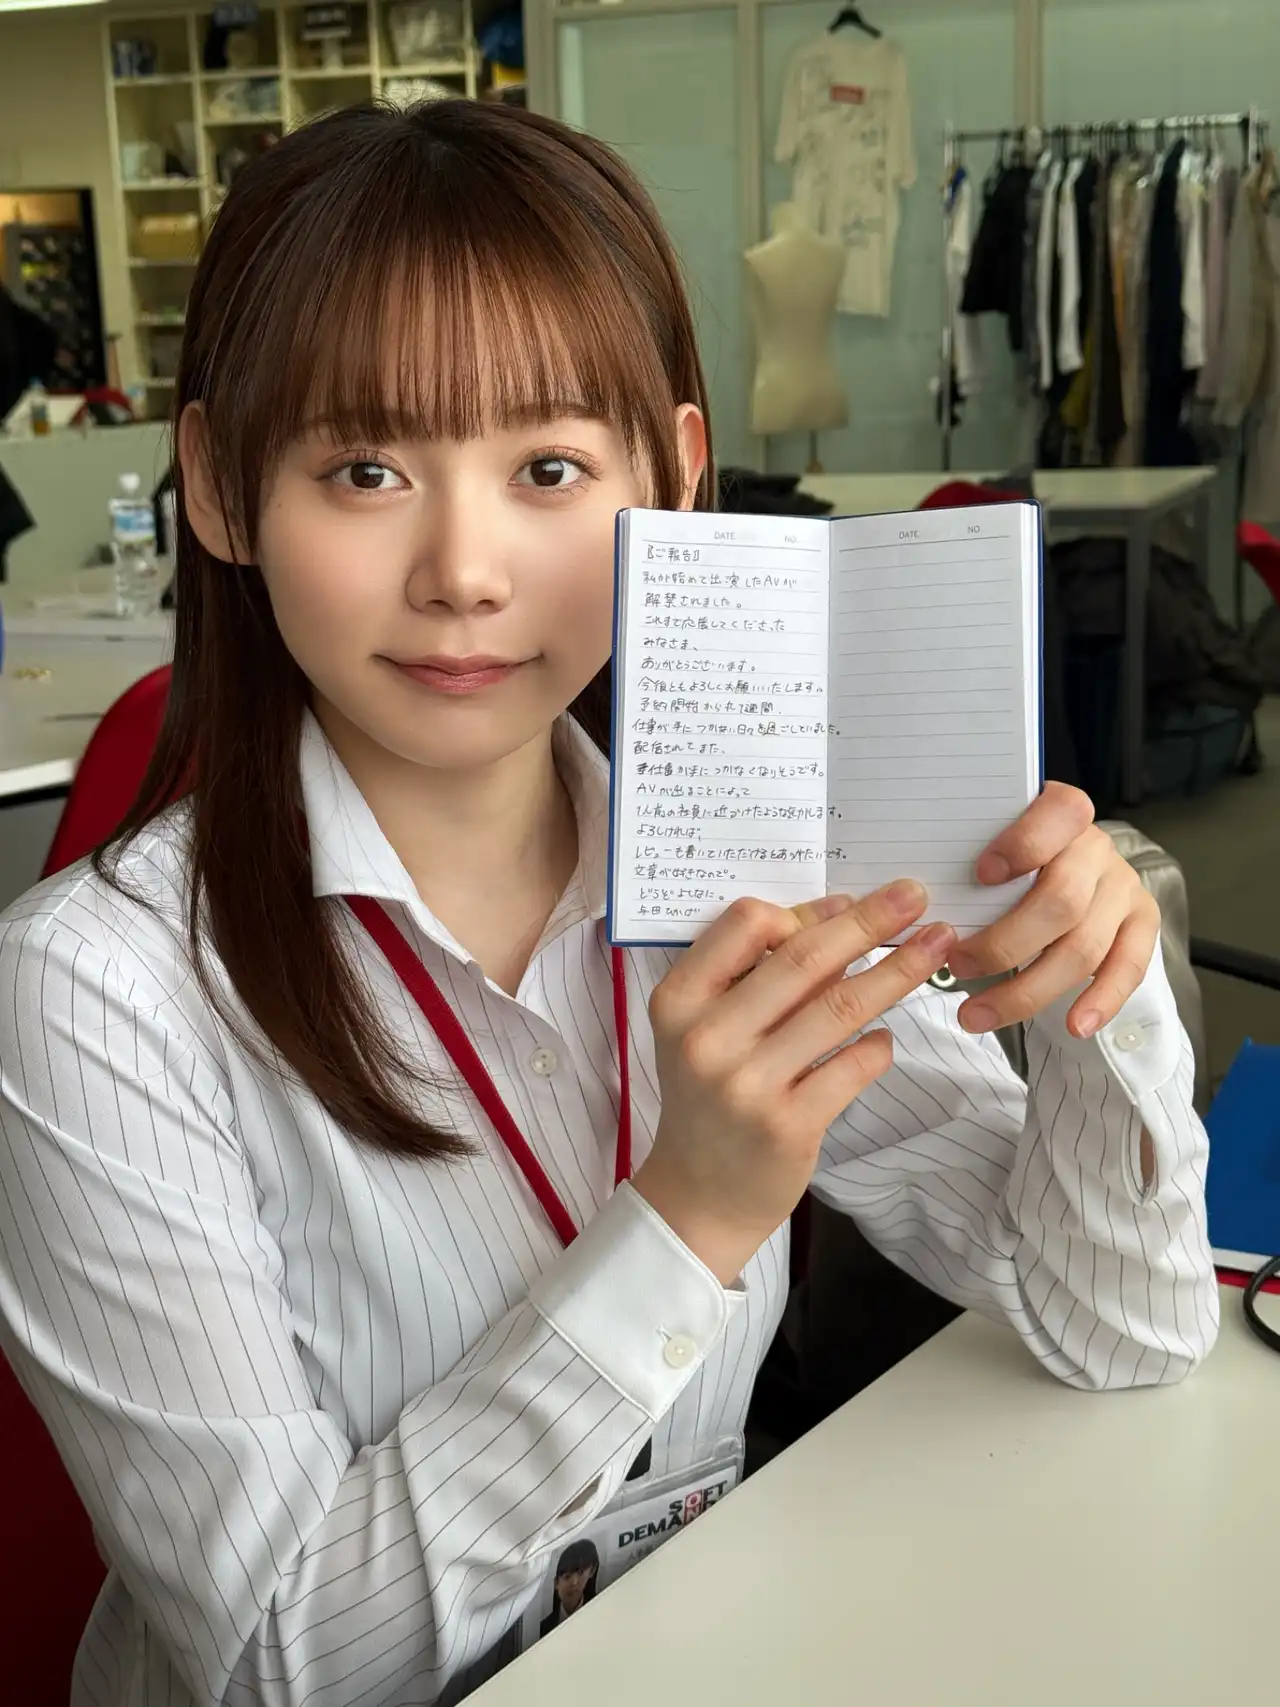 DATE NO.
【ご報告】
私が始めて出演したAVが
解禁されました。
これまで応援してくださった
みなさま、
ありがとうございます。
今後ともよろしくお願いいたします。
予約開始から1週間、
仕事が手につかない日々を過ごしていました。
配信されてまた、
仕事が手につかなくなりそうです。
AVが出ることによって
1人前の社員に近づけたような気がします。
よろしければ、
レビューも書いていただけるとありがたいです。
文章が好きなので。
どうぞよしなに。
与田ひかば
DATE NO.
SOFT
ON
DEMAND